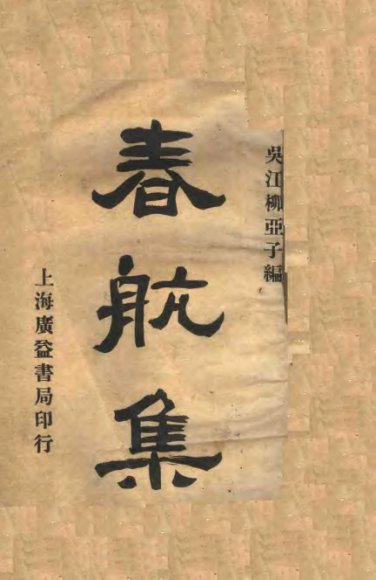 吳江柳亞子編
春航集
上海廣益書局印行